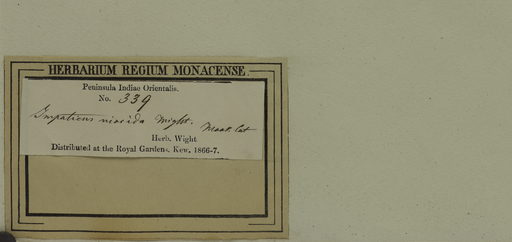 HERBARIUM REGIUM MONACENSE.
Peninsula Indiae Orientalis.
No. 339
Impatiens viscida Wight.
Herb. Wight
Distributed at the Royal Gardens, Kew. 1866-7.